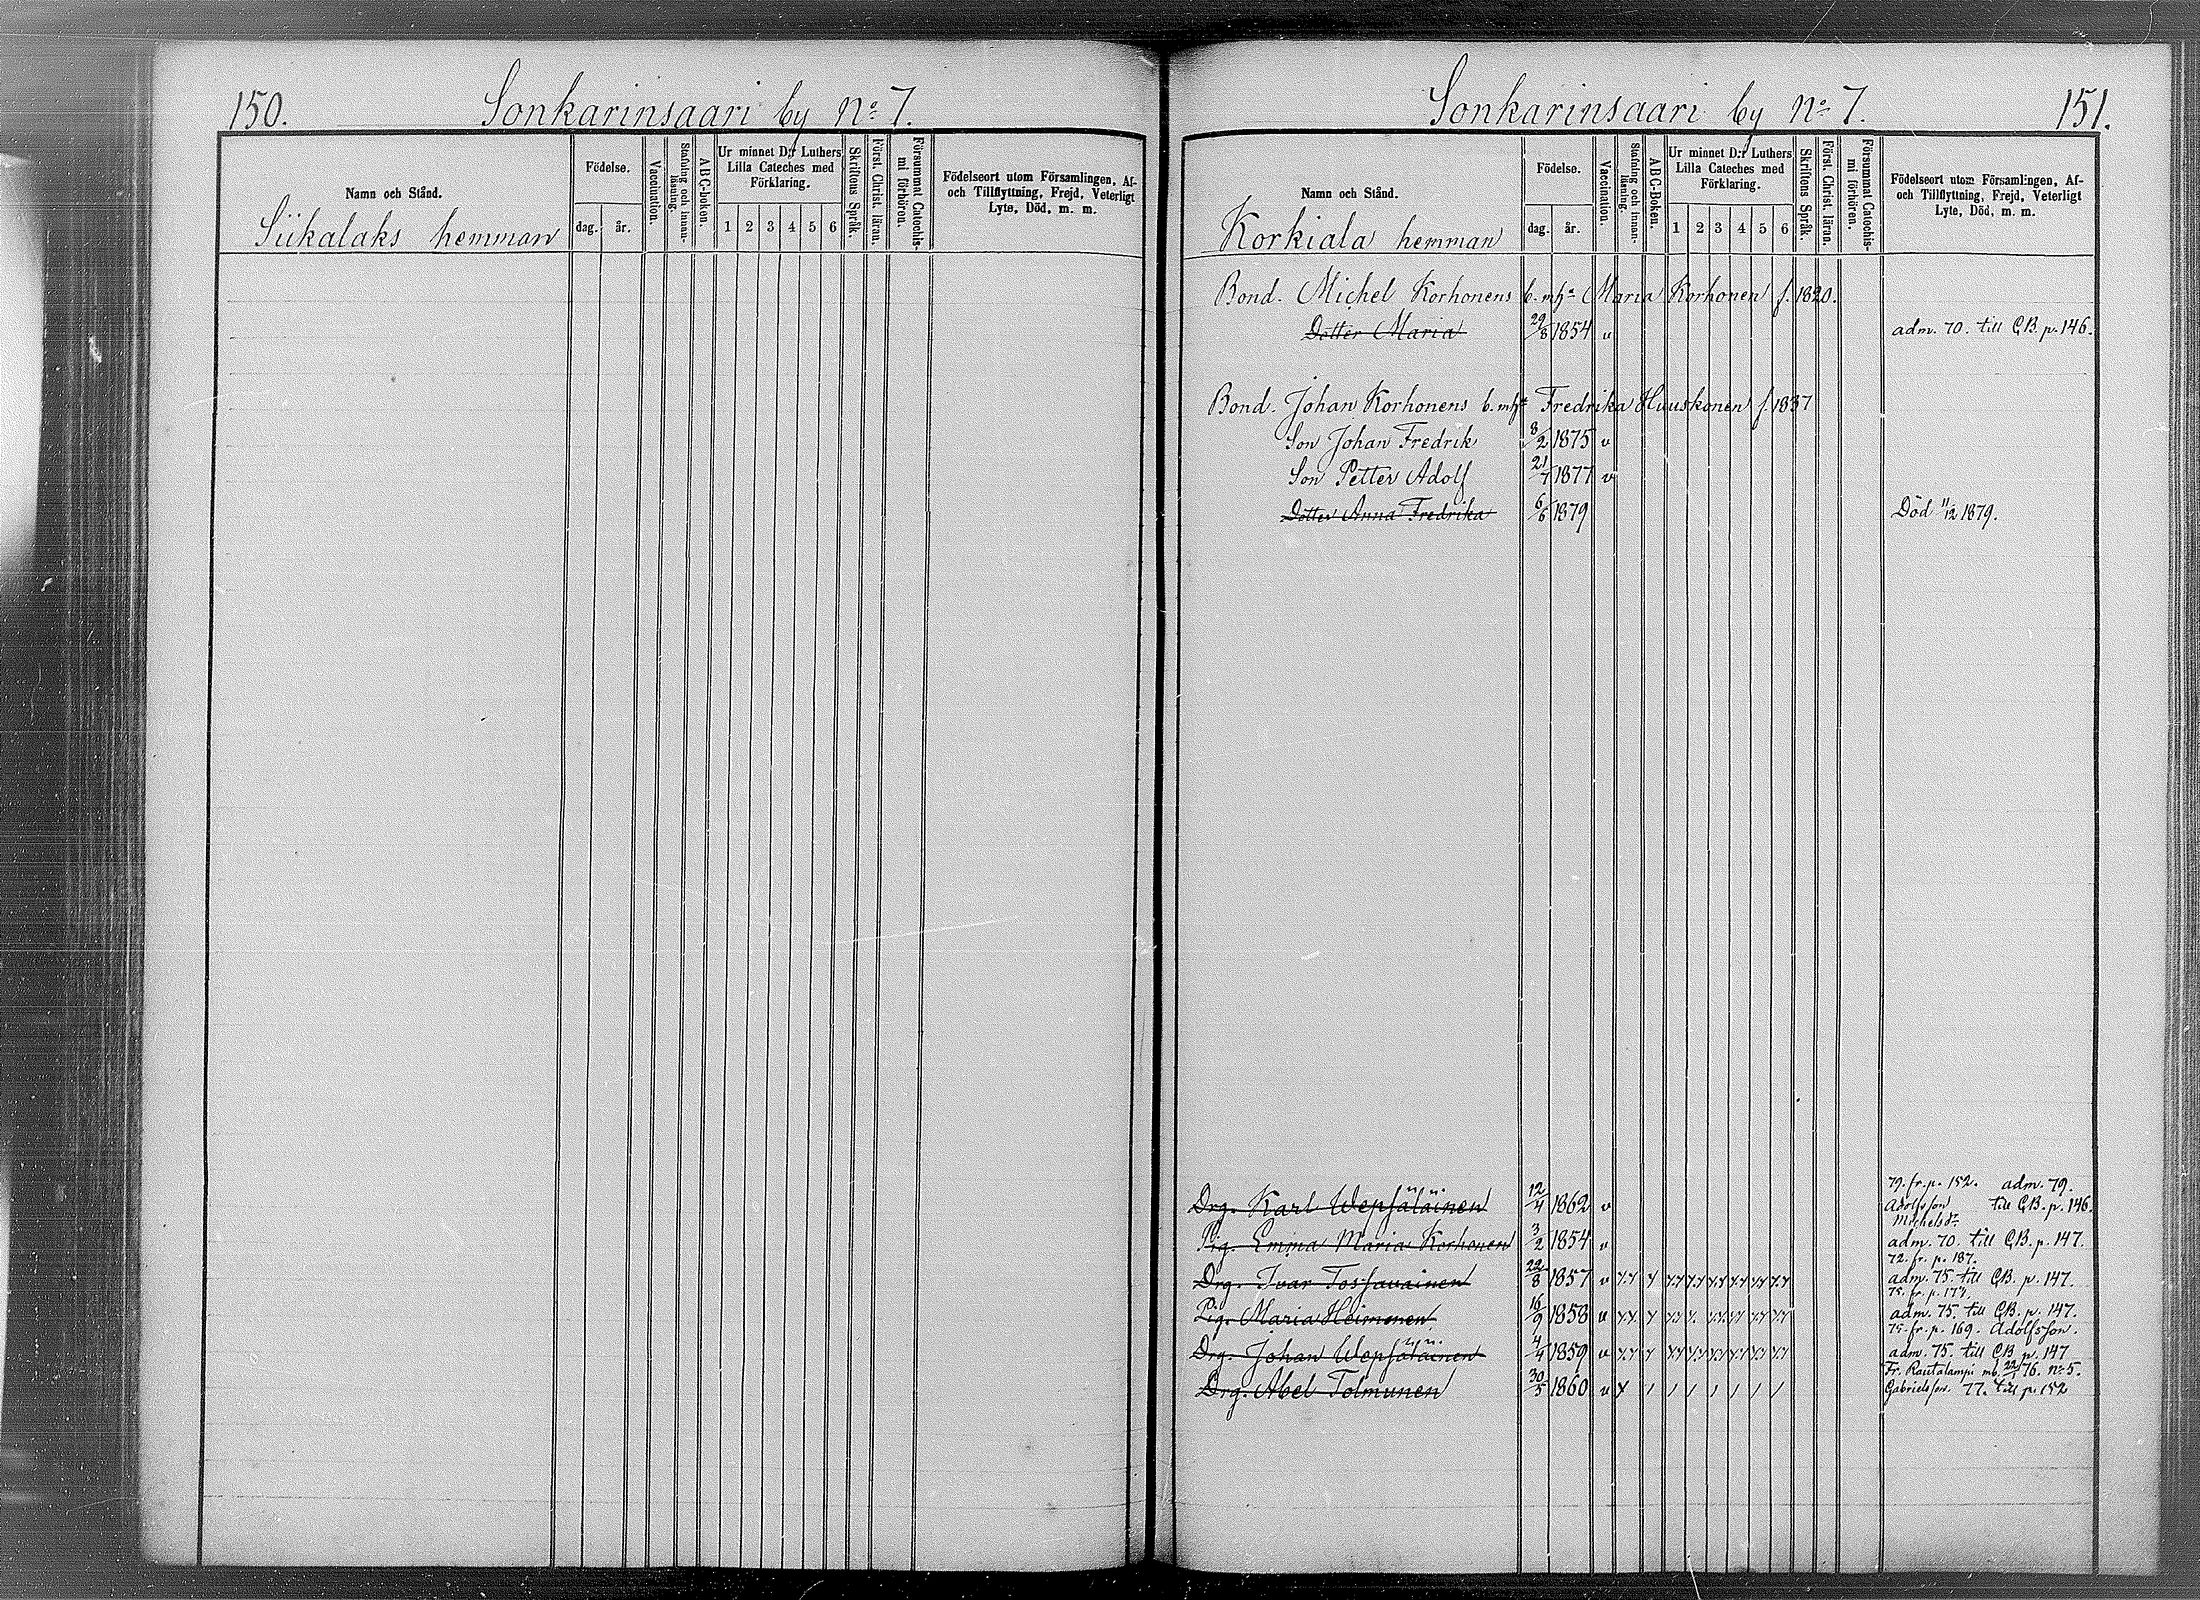 150.
Sonkarinsaari by No 7.
Namn och Stånd.
Siikalaks hemman
Födelse.
dag. år.
Vaccination.
Stafning och innan-läsning.
ABC-boken.
Ur minnet D:r Luthers
Lilla Cateches med
Förklaring.
1 2 3 4 5 6
Skriftens Språk.
Först. Christ. läran.
Försummat Catechis-mi förhören.
Födelseort utom Församlingen, Af-
och Tillflyttning, Frejd, Veterligt
Lyte, Död, m. m.
Sonkarinsaari by No 7.
151.
Namn och Stånd.
Korkiala hemman
Födelse.
dag. år.
Vaccination.
Stafning och innan-läsning.
ABC-Boken.
Ur minnet D:r Luthers
Lilla Cateches med
Förklaring.
1 2 3 4 5 6
Skriftens Språk.
Först. Christ. läran.
Försummat Catechis-mi förhören.
Födelseort utom Församlingen, Af-
och Tillflyttning, Frejd, Veterligt
Lyte, Död, m. m.
Bond. Michel Korhonens b. m. h:a Maria Korhonen f. 1820.
Dotter Maria 29/8 1854 v adm. 70. till CB. p. 146.
Bond. Johan Korhonens b. m. h:a Fredrika Huuskonen f. 1837
Son Johan Fredrik 8/2 1875 v
Son Petter Adolf 21/7 1877 v
Dotter Anna Fredrika 6/6 1879 Död 11/12 1879.
79. fr. p. 152. adm. 79.
Drg. Karl Wepsäläinen 12/4 1862 v Adolfsson till CB. p. 146.
Michelsdr
Pig. Emma Maria Korhonen 3/2 1854 v adm. 70. till CB. p. 147.
72. fr. p. 187.
Drg. Ivar Tossavainen 22/8 1857 v adm. 75. till CB. p. 147.
75. fr. p. 177.
Pig. Maria Heimonen 16/9 1858 v adm. 75. till CB. p. 147.
75. fr. p. 169. Adolfsson.
Drg. Johan Wepsäläinen 4/4 1859 v adm. 75. till CB p. 147
Fr. Rautalampi mb. 22/1 76. No 5.
Drg. Abel Tolmunen 30/5 1860 v Gabrielsson. 77. till p. 152